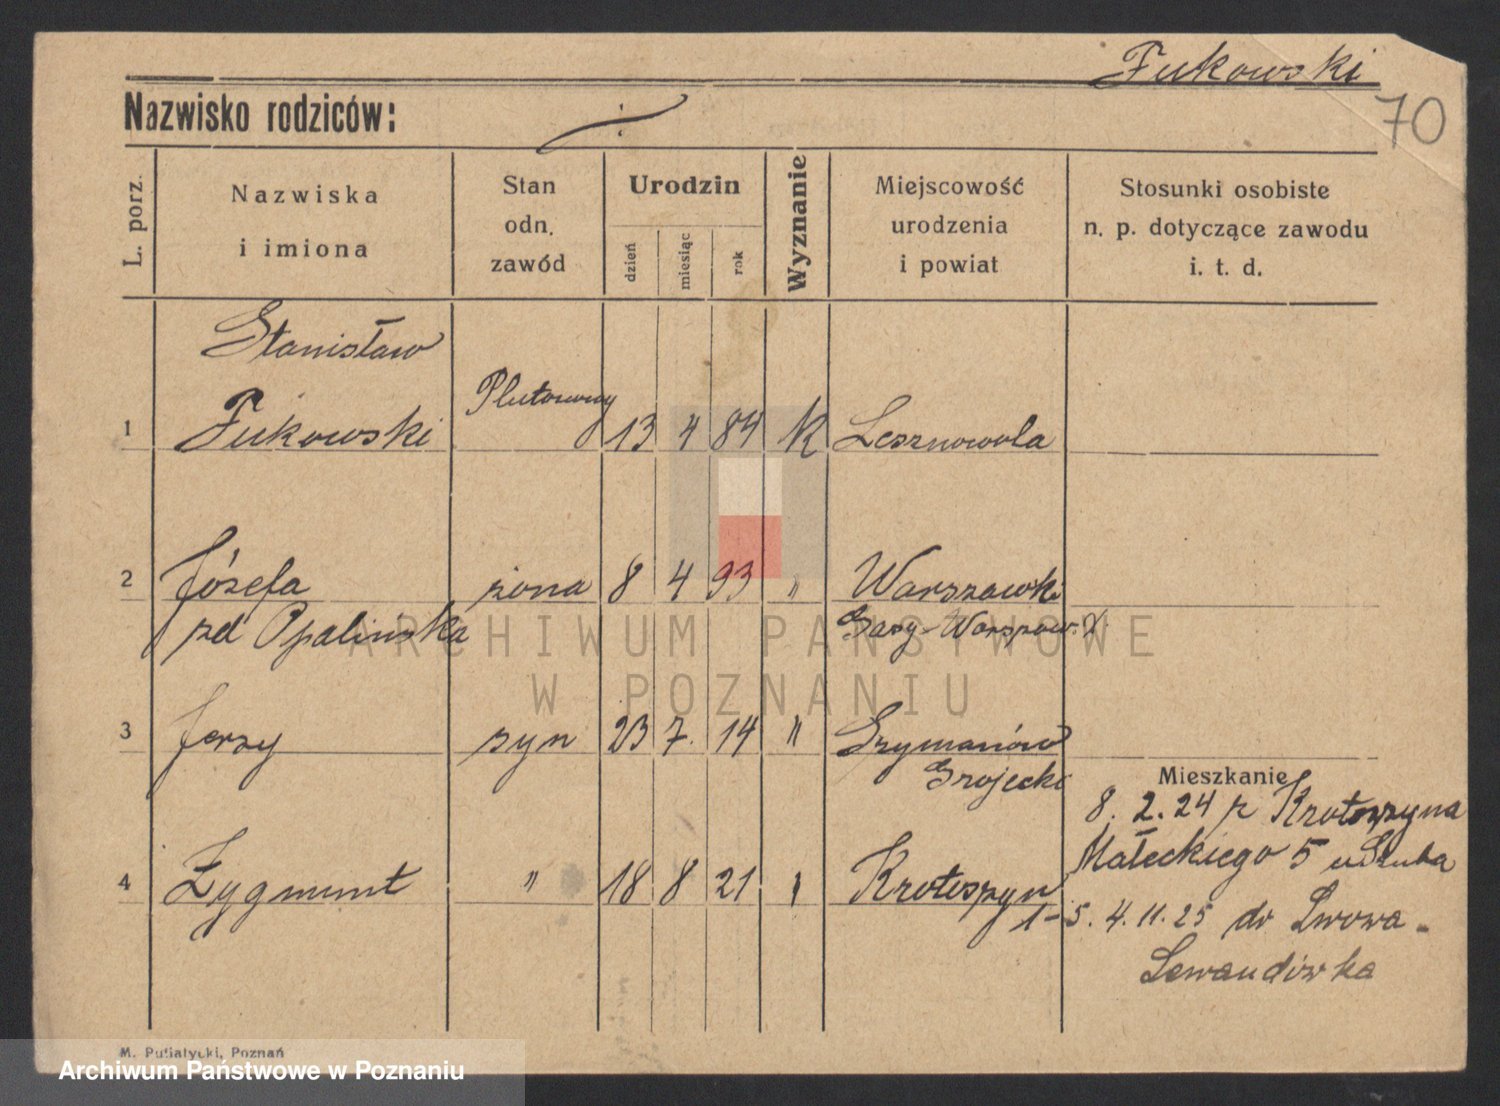 Fukowski
70
Nazwisko rodziców:
L. porz.
Nazwiska i imiona
Stan odn. zawód
Urodzin
dzień
miesiąc
rok
Wyznanie
Miejscowość urodzenia i powiat
Stosunki osobiste n. p. dotyczące zawodu i. t. d.
Stanisław
1 Fukowski Plutonowy 13 4 84 K Lesznowola
2 Józefa żona 8 4 93 " Warszawki
zd Opalinska
3 Jerzy syn 23 7. 14 " Szymanów
Grojecki
Mieszkanie
8. 2. 24 z Krotoszyna
Małeckiego 5
4 Zygmunt " 18 8 21 " Krotoszyn
1-5. 4. 11. 25 do Lwowa -
Lewandówka
M. Putiatycki, Poznań
ARCHIWUM PAŃSTWOWE
W POZNANIU
Archiwum Państwowe w Poznaniu